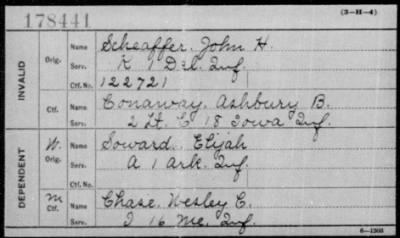 178441
(3-H-4)
INVALID
Orig. Name Scheaffer, John H.
Serv. K 1 Del. Inf.
Ctf. No. 122721
Ctf. Name Conaway, Ashbury B.
Serv. 2 Lt. C 18 Iowa Inf.
DEPENDENT
W. Orig. Name Soward, Elijah
Serv. A 1 Ark. Inf.
Ctf. No.
M Ctf. Name Chase, Wesley C.
Serv. I 16 Me. Inf.
6—1203